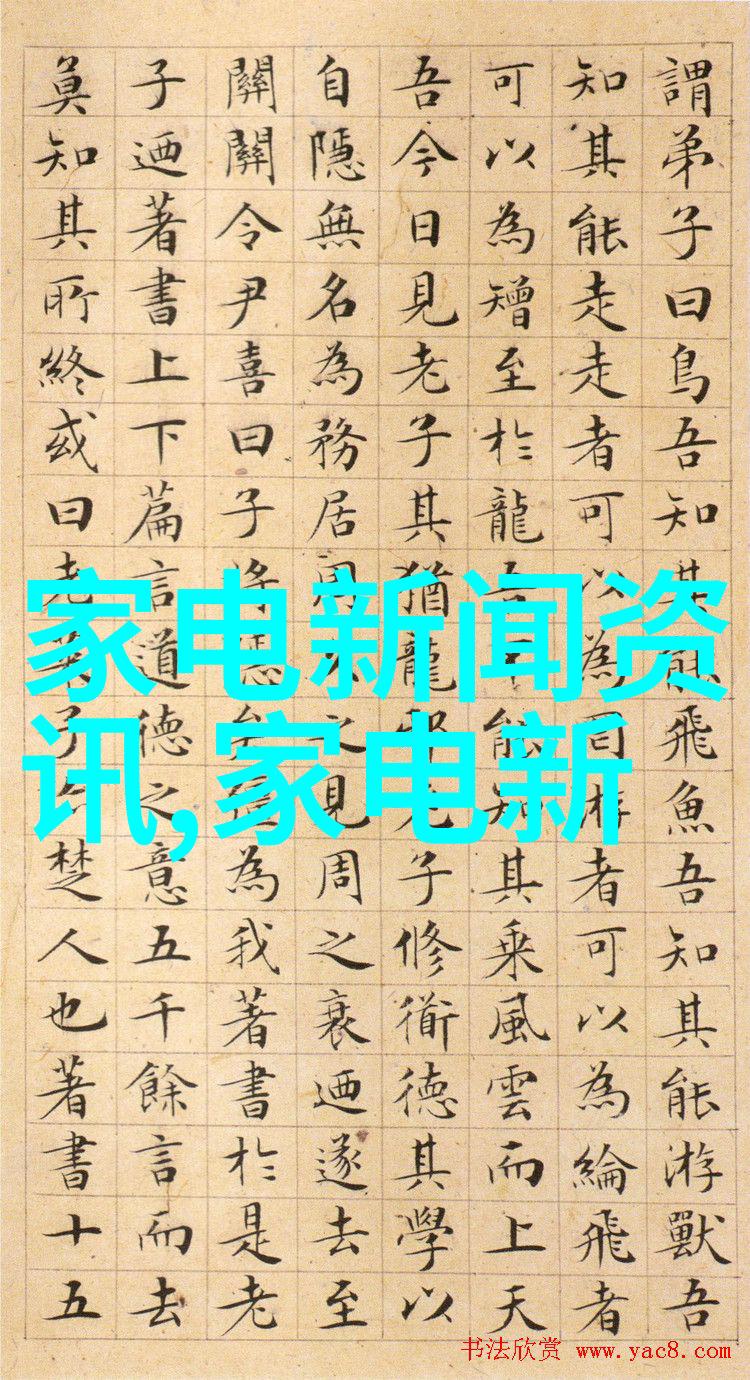 謂弟子曰鳥吾知其能飛魚吾知其能游獸吾
知其能走走者可以為罔游者可以為綸飛者
可以為矰至於龍吾不能知其乗風雲而上天
吾今日見老子其猶龍邪老子修衜德其學以
自隱無名為務居周久之見周之衰迺遂去至
關關令尹喜曰子將隱矣為我著書於是老
子迺著書上下篇言道德之意五千餘言而去
莫知其所終或曰老萊子亦楚人也著書十五
家电新闻资
讯,家电新
书法欣赏 www.yac8.com